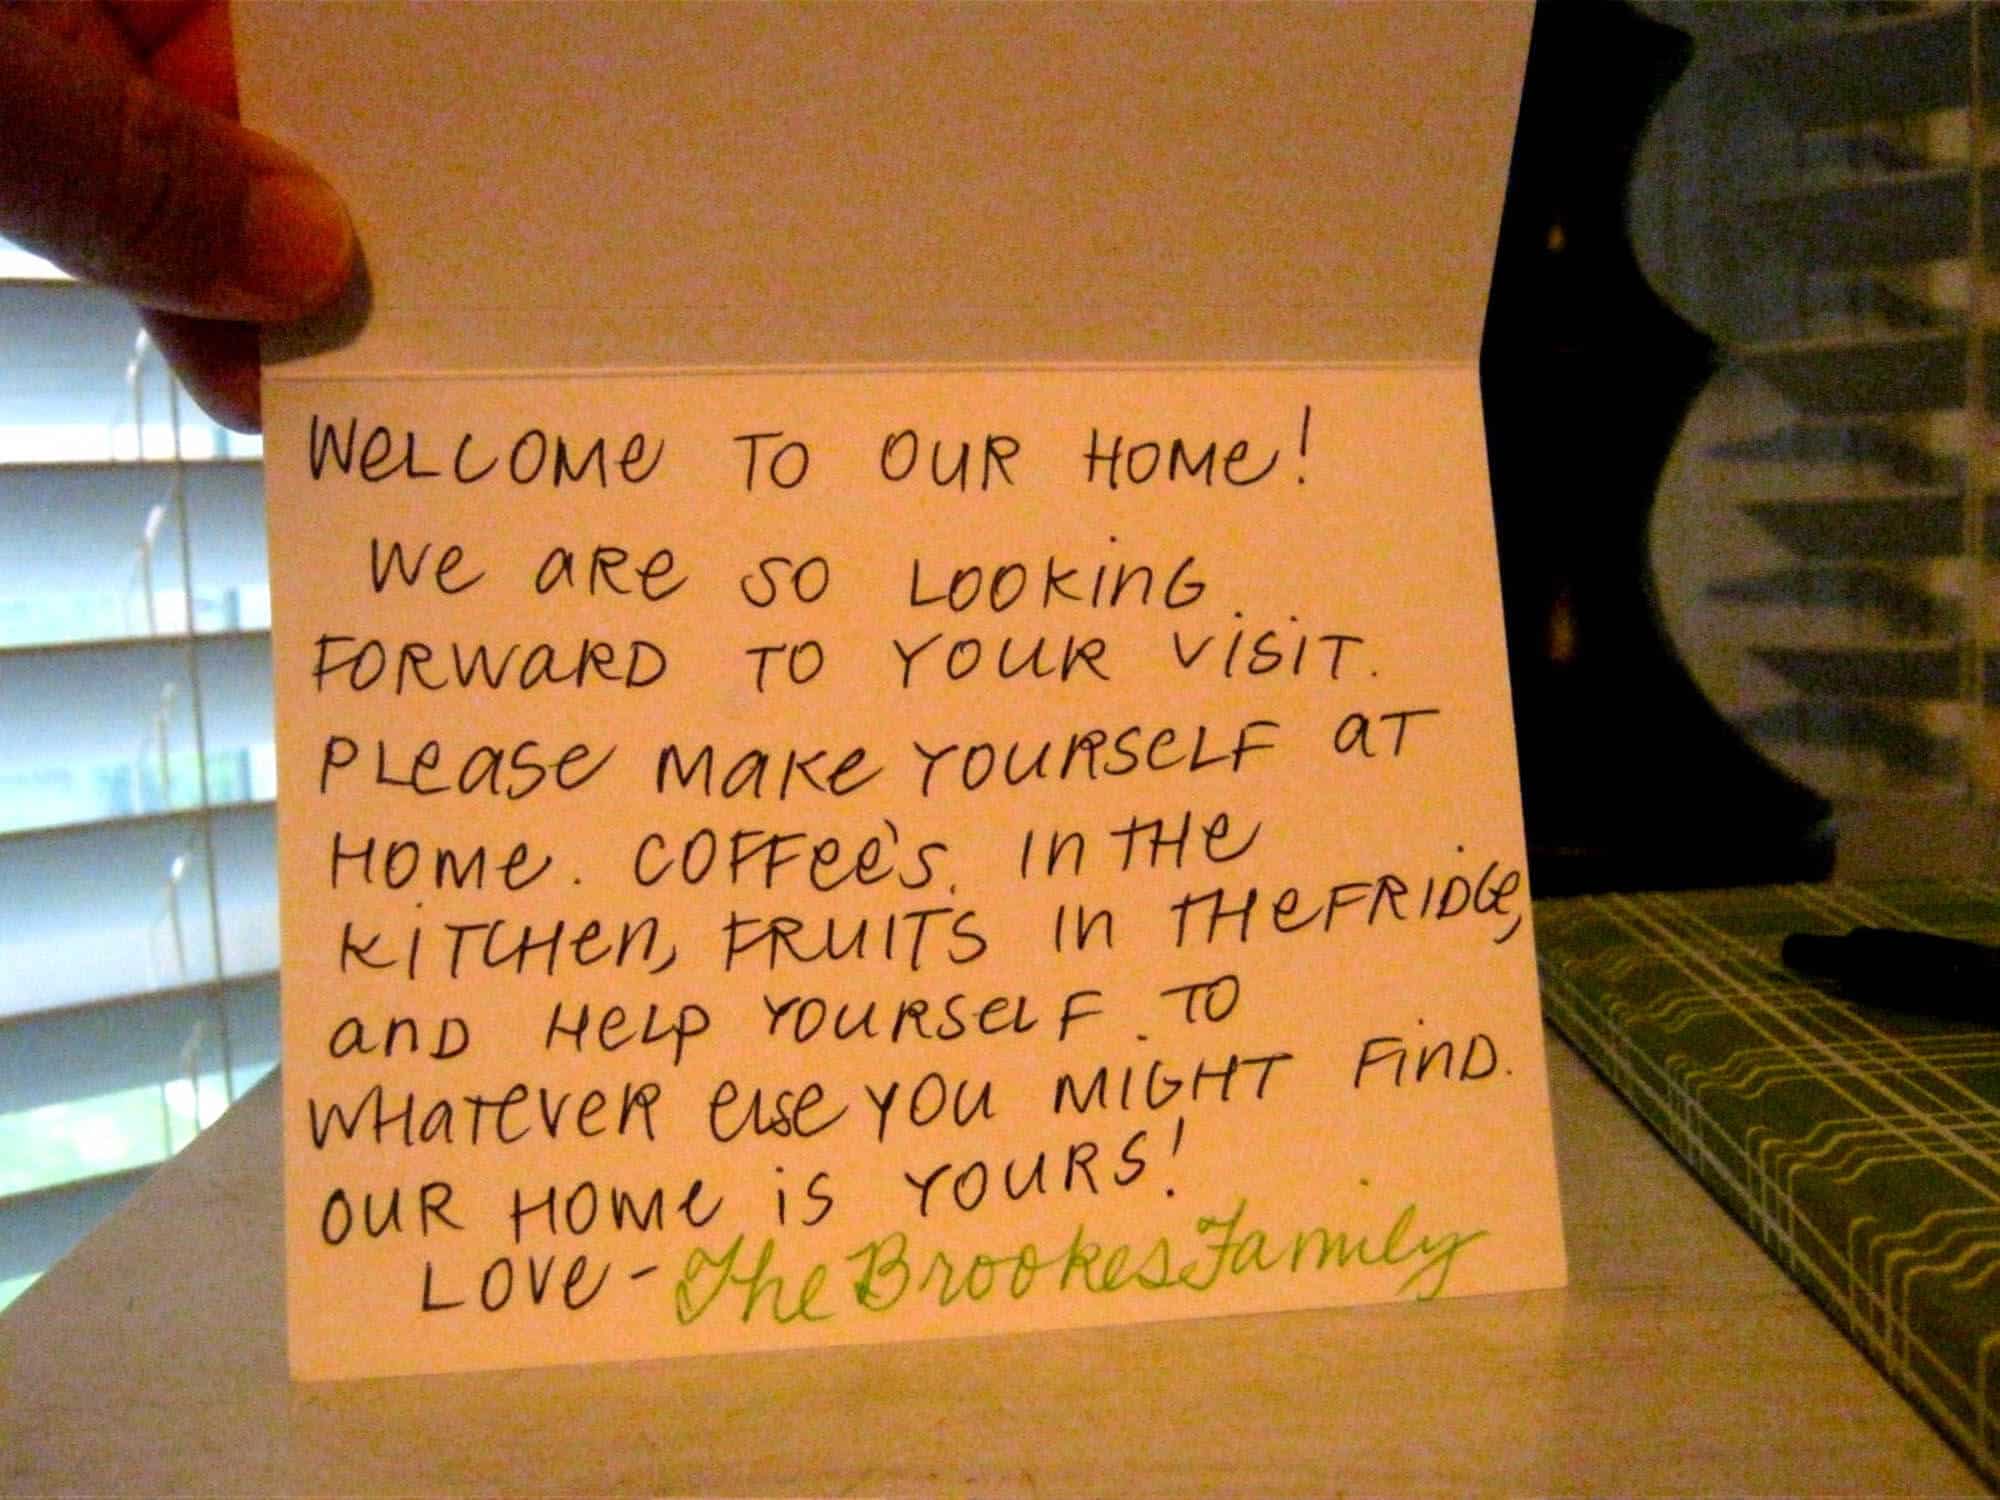 WELCOME TO OUR HOME!
WE ARE SO LOOKING
FORWARD TO YOUR VISIT.
PLEASE MAKE YOURSELF AT
HOME. COFFEE'S IN THE
KITCHEN, FRUITS IN THE FRIDGE,
AND HELP YOURSELF TO
WHATEVER ELSE YOU MIGHT FIND.
OUR HOME IS YOURS!
LOVE - The Brookes Family